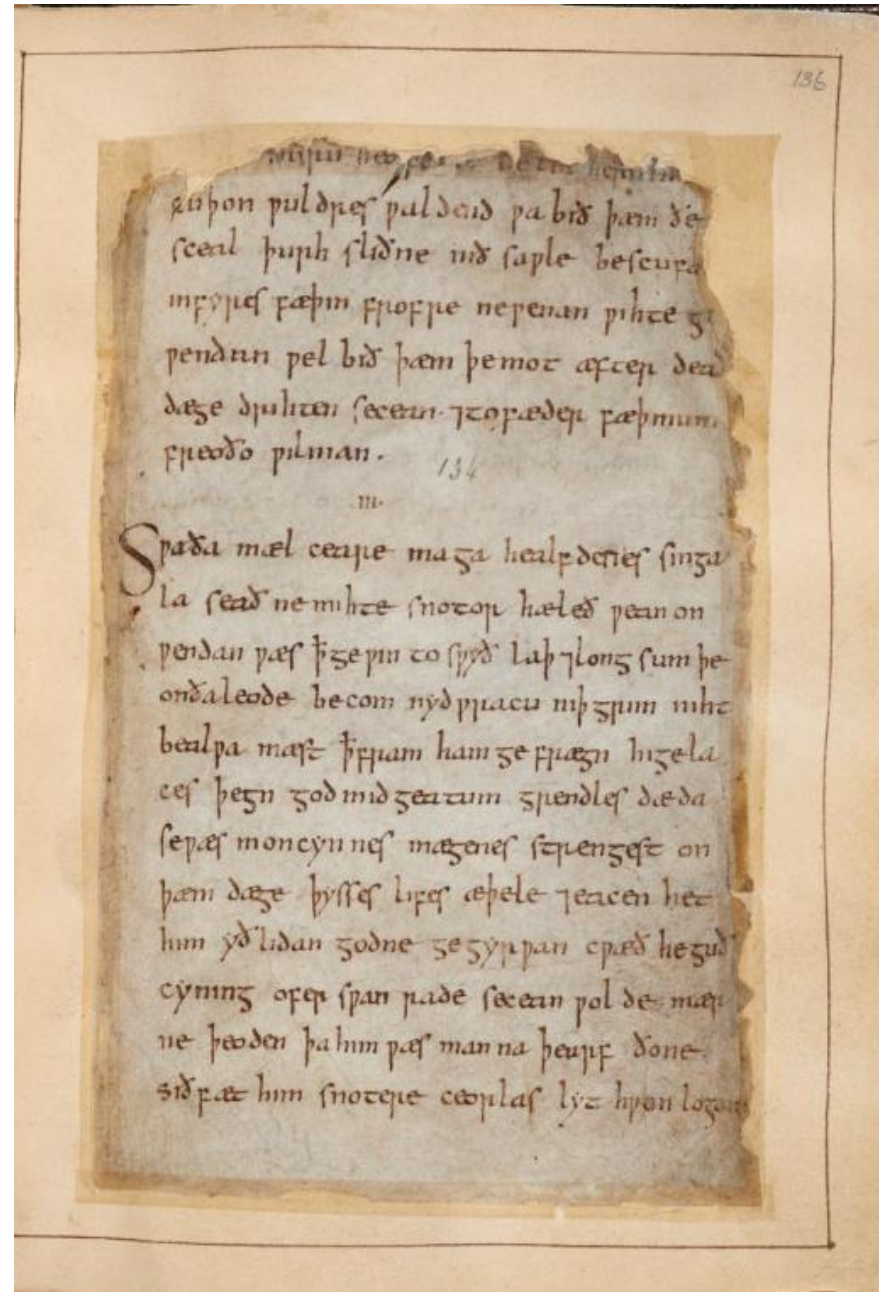 136
huru heofena helm herian
cuþon ƿuldres ƿaldend ƿa bið þæm ðe
sceal þurh sliðne nið saƿle bescufa
in fyres fæþm frofre ne ƿenan ƿihte ge
ƿendan ƿel bið þæm þe mot æfter dead
dæge drihten secean · ⁊ to fæder fæþmum
freoðo ƿilnian .
134
III.
Sƿa ða mæl ceare maga healfdenes singa
la seað ne mihte snotor hæleð ƿean on
ƿendan ƿæs ꝥ geƿin to sƿyð laþ ⁊ long sum þe
on ða leode becom nyd ƿracu niþ grim niht
bealƿa mæst ꝥ fram ham gefrægn higela
ces þegn god mid geatum grendles dæda
se ƿæs moncynnes mægenes strengest on
þæm dæge þysses lifes æþele ⁊ eacen het
him yð lidan godne gegyrƿan cƿæð he guð
cyning ofer sƿan rade secean ƿolde mær
ne þeoden þa him ƿæs manna þearf ðone
sið fæt him snotere ceorlas lyt hƿon logon